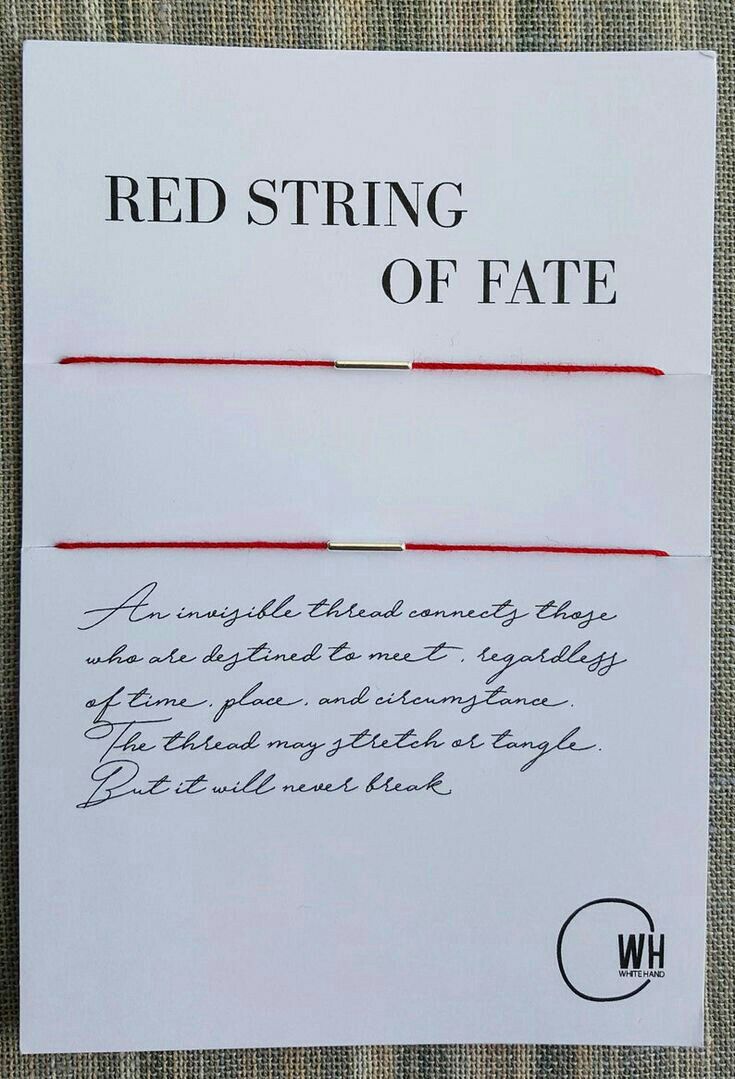 RED STRING
OF FATE
An invisible thread connects those
who are destined to meet, regardless
of time, place, and circumstance.
The thread may stretch or tangle.
But it will never break
WH
WHITE HAND